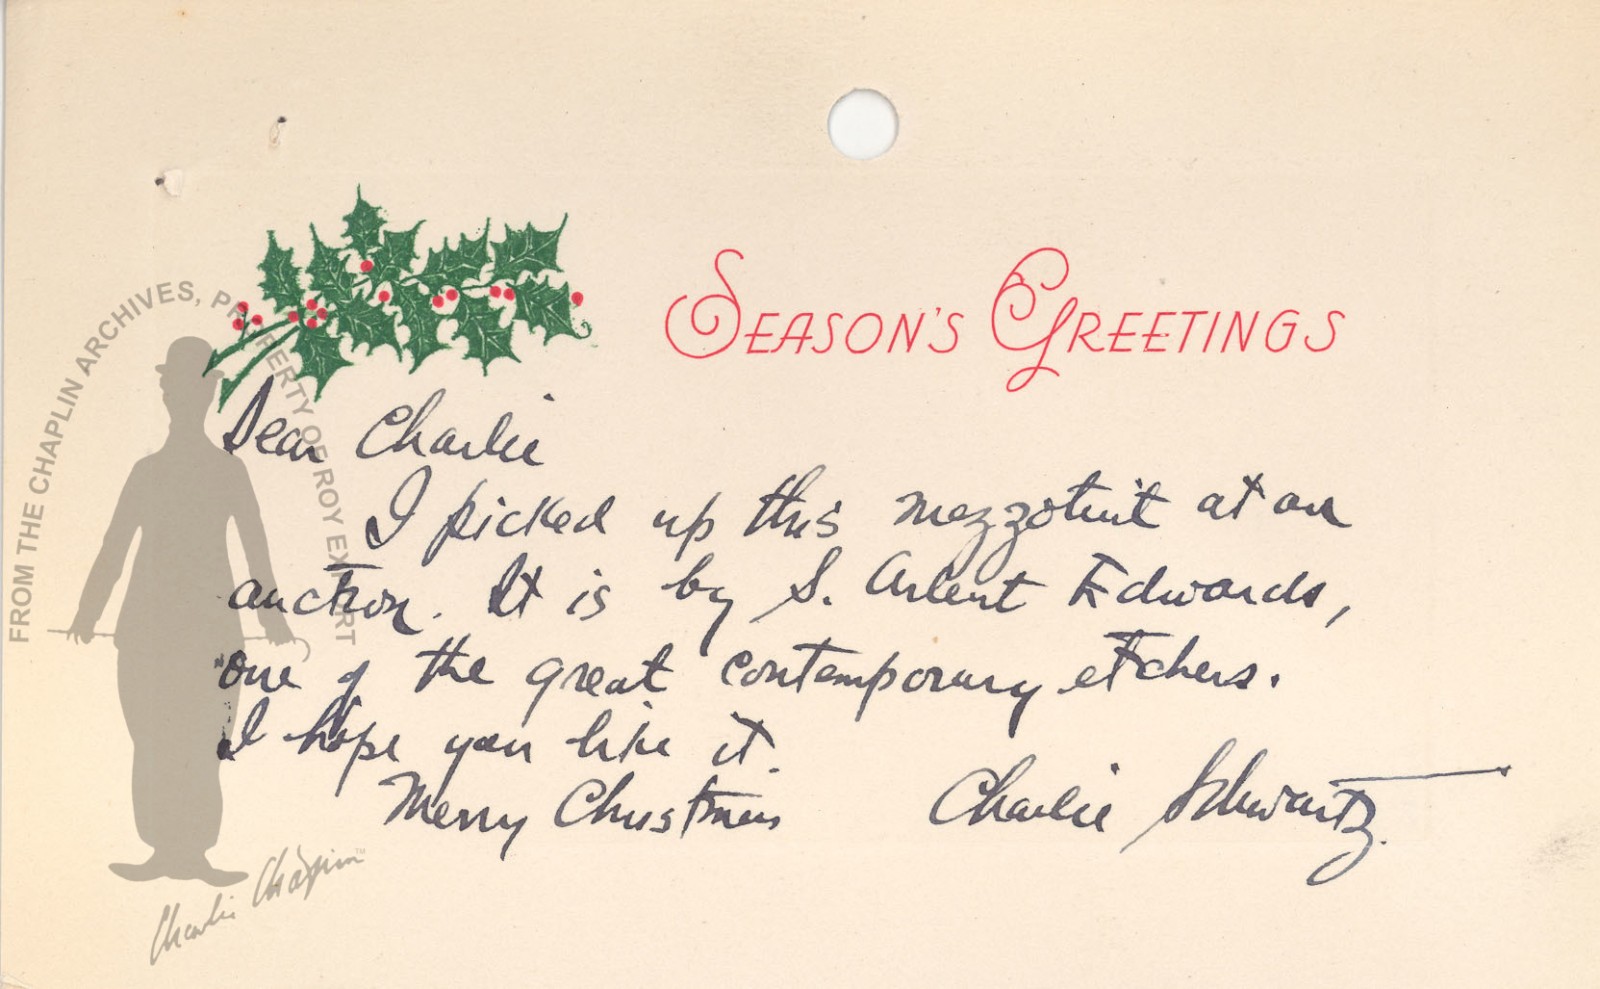 SEASON'S GREETINGS
Dear Charlie
I picked up this mezzotint at an
auction. It is by S. Arlent Edwards,
one of the great contemporary etchers.
I hope you like it.
Merry Christmas Charlie Schwartz.
FROM THE CHAPLIN ARCHIVES, PROPERTY OF ROY EXPORT
Charlie Chaplin™